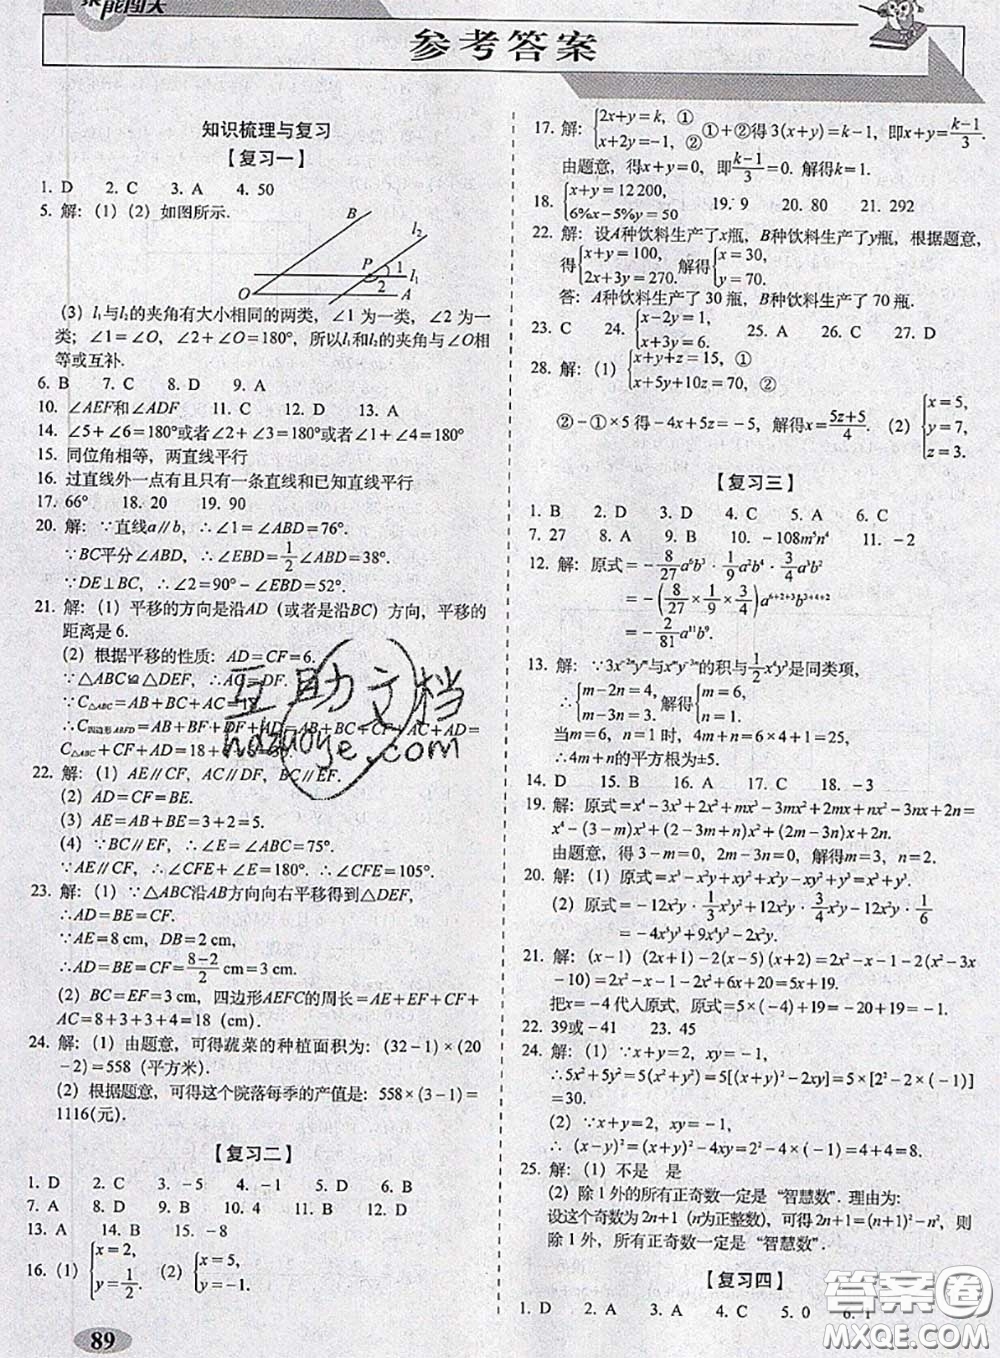 聚能闯关
参考答案
知识梳理与复习
【复习一】
1. D  2. C  3. A  4. 50
5. 解：(1) (2) 如图所示.
B
l₂
P
1
l₁
2
O
A
(3) l₁与l₂的夹角有大小相同的两类，∠1 为一类，∠2 为一
类；∠1＝∠O，∠2＋∠O＝180°，所以l₁和l₂的夹角与∠O相
等或互补.
6. B  7. C  8. D  9. A
10. ∠AEF和∠ADF  11. C  12. D  13. A
14. ∠5＋∠6＝180°或者∠2＋∠3＝180°或者∠1＋∠4＝180°
15. 同位角相等，两直线平行
16. 过直线外一点有且只有一条直线和已知直线平行
17. 66°  18. 20  19. 90
20. 解：∵直线a∥b，∴∠1＝∠ABD＝76°.
∵BC平分∠ABD，∴∠EBD＝1/2∠ABD＝38°.
∵DE⊥BC，∴∠2＝90°－∠EBD＝52°.
21. 解：(1) 平移的方向是沿AD（或者是沿BC）方向，平移的
距离是 6.
(2) 根据平移的性质：AD＝CF＝6.
∵△ABC≌△DEF，∴AC＝DF.
∵C△ABC＝AB＋BC＋AC＝18，
∴C四边形ABFD＝AB＋BF＋DF＋AD＝AB＋BC＋CF＋AC＋AD＝
C△ABC＋CF＋AD＝18＋6＋6＝30.
22. 解：(1) AE∥CF，AC∥DF，BC∥EF.
(2) AD＝CF＝BE.
(3) AB＝AE－BE＝3＋2＝5.
(4) ∵BC∥EF，∴∠E＝∠ABC＝75°.
∵AE∥CF，∴∠CFE＋∠E＝180°. ∴∠CFE＝105°.
23. 解：(1) ∵△ABC沿AB方向向右平移得到△DEF，
∴AD＝BE＝CF.
∵AE＝8 cm，DB＝2 cm，
∴AD＝BE＝CF＝(8－2)/2 cm＝3 cm.
(2) BC＝EF＝3 cm，四边形AEFC的周长＝AE＋EF＋CF＋
AC＝8＋3＋3＋4＝18（cm）.
24. 解：(1) 由题意，可得蔬菜的种植面积为：(32－1)×(20
－2)＝558（平方米）.
(2) 根据题意，可得这个院落每季的产值是：558×(3－1)＝
1116(元).
【复习二】
1. D  2. C  3. －5  4. －1  5. D  6. B
7. A  8. D  9. B  10. 4  11. B  12. D
13. A  14. B  15. －8
16. (1) {x＝2, y＝1/2.  (2) {x＝5, y＝－1.
89
17. 解：{2x＋y＝k，① x＋2y＝－1，② ①＋②得 3(x＋y)＝k－1，即x＋y＝(k－1)/3.
由题意，得x＋y＝0，即(k－1)/3＝0. 解得k＝1.
18. {x＋y＝12 200, 6%x－5%y＝50  19. 9  20. 80  21. 292
22. 解：设A种饮料生产了x瓶，B种饮料生产了y瓶，根据题意，
得{x＋y＝100, 2x＋3y＝270. 解得{x＝30, y＝70.
答：A种饮料生产了 30 瓶，B种饮料生产了 70 瓶.
23. C  24. {x－2y＝1, x＋3y＝6.  25. A  26. C  27. D
28. 解：(1) {x＋y＋z＝15，① x＋5y＋10z＝70，②
②－①×5 得－4x＋5z＝－5，解得x＝(5z＋5)/4. (2) {x＝5, y＝7, z＝3.
【复习三】
1. B  2. D  3. D  4. C  5. A  6. C
7. 27  8. A  9. B  10. －108m⁵n⁴  11. －2
12. 解：原式＝－8/27a⁶b³·1/9a²b⁴·3/4a³b²
＝－(8/27×1/9×3/4)a⁶⁺²⁺³b³⁺⁴⁺²
＝－2/81a¹¹b⁹.
13. 解：∵3x⁻²ᵐyⁿ与xⁿy⁻³ⁿ的积与1/2x⁴y是同类项，
∴{m－2n＝4, m－3n＝3. 解得{m＝6, n＝1.
当m＝6，n＝1 时，4m＋n＝4×6＋1＝25，
∴4m＋n的平方根为±5.
14. D  15. B  16. A  17. C  18. －3
19. 解：原式＝x⁴－3x³＋2x²＋mx³－3mx²＋2mx＋nx²－3nx＋2n＝
x⁴－(3－m)x³＋(2－3m＋n)x²＋(2m－3n)x＋2n.
由题意，得 3－m＝0，2－3m＋n＝0，解得m＝3，n＝2.
20. 解：(1) 原式＝x³－x²y＋xy²＋x²y－xy²＋y³＝x³＋y³.
(2) 原式＝－12x²y·1/3x²y³＋12x²y·3/4x²y－12x²y·1/6
＝－4x³y³＋9x⁴y²－2x²y.
21. 解：(x－1)(2x＋1)－2(x－5)(x＋2)＝2x²－x－1－2(x²－3x
－10)＝2x²－x－1－2x²＋6x＋20＝5x＋19.
把x＝－4代入原式，原式＝5×(－4)＋19＝－20＋19＝－1.
22. 39或－41  23. 45
24. 解：(1) ∵x＋y＝2，xy＝－1，
∴5x²＋5y²＝5(x²＋y²)＝5[(x＋y)²－2xy]＝5×[2²－2×(－1)]
＝30.
(2) ∵x＋y＝2，xy＝－1，
∴(x－y)²＝(x＋y)²－4xy＝2²－4×(－1)＝4＋4＝8.
25. 解：(1) 不是  是
(2) 除 1 外的所有正奇数一定是“智慧数”. 理由为：
设这个奇数为 2n＋1（n为正整数），可得2n＋1＝(n＋1)²－n²，则
除 1 外，所有正奇数一定是“智慧数”.
【复习四】
1. D  2. A  3. A  4. C  5. 0  6. 1
互助文档
hdzuoye.com
答案圈
MXQE.COM